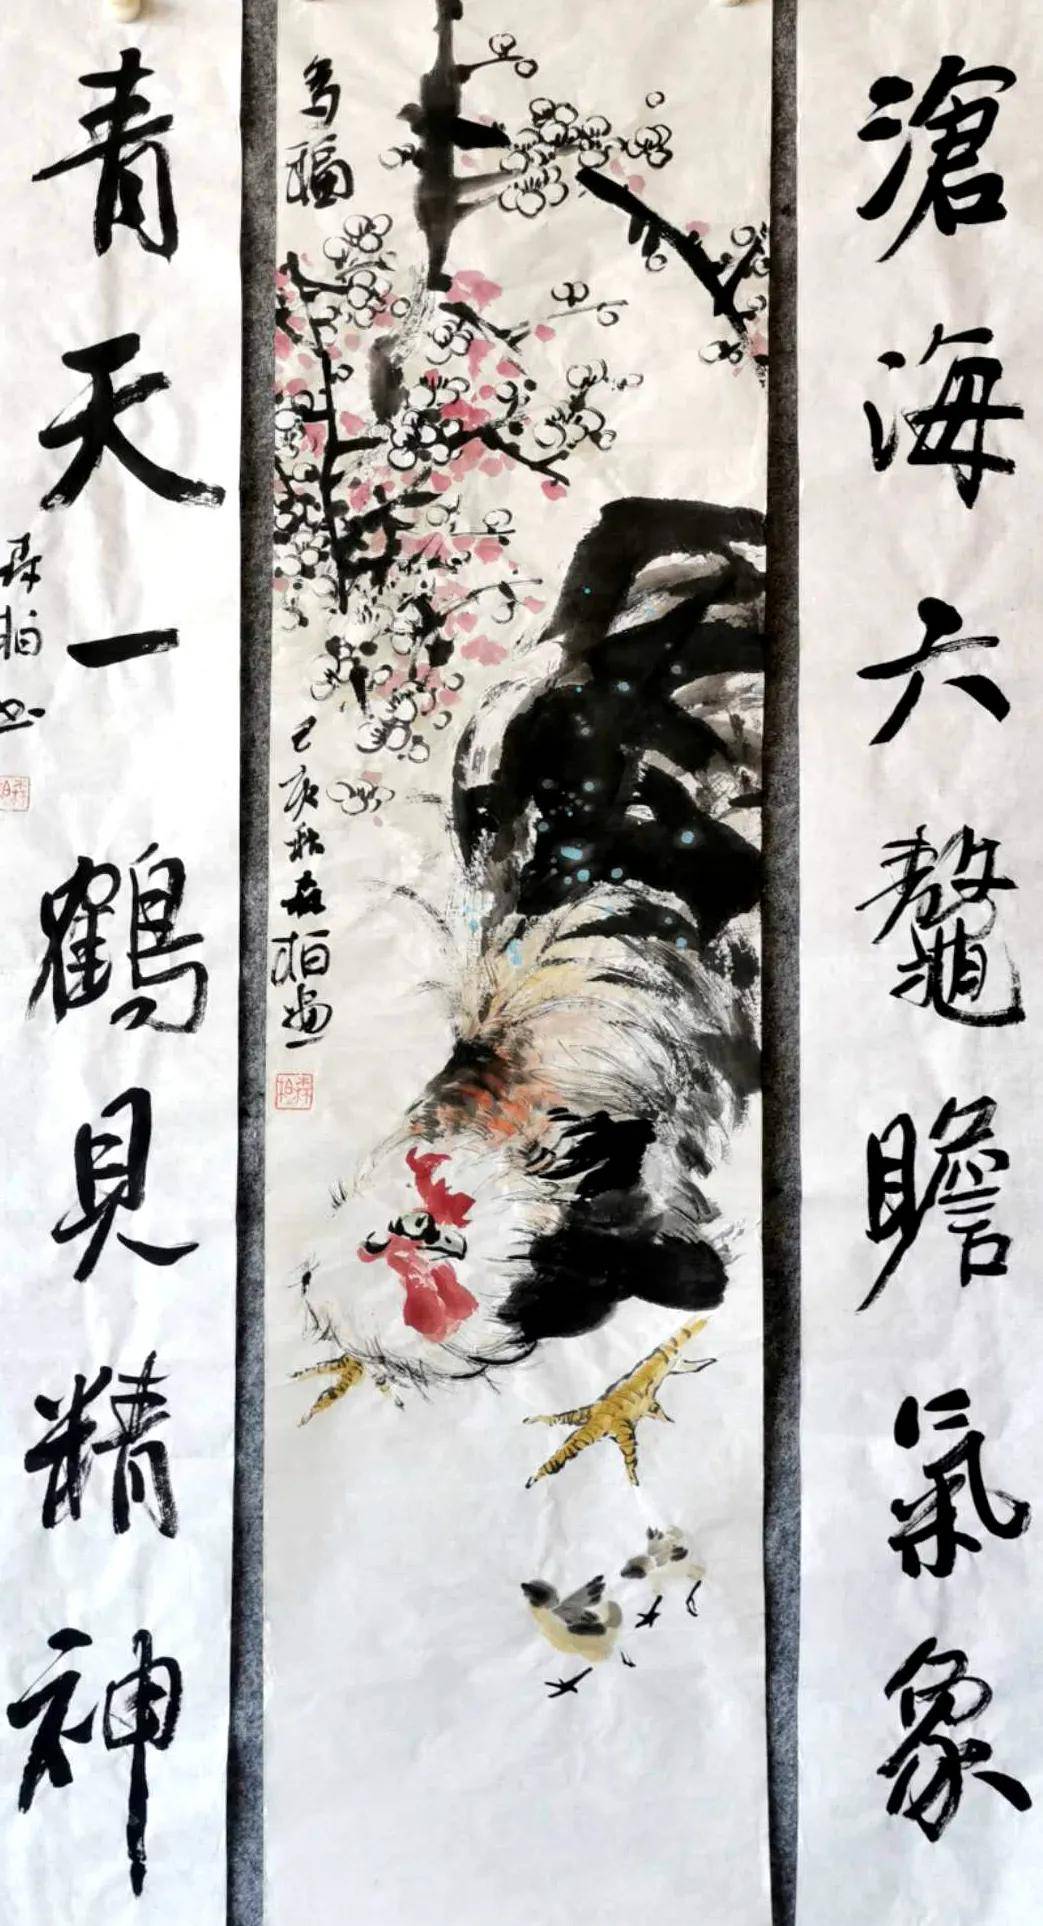 滄海六鼇瞻氣象
青天一鶴見精神
森柏书
多福
己亥秋森柏画